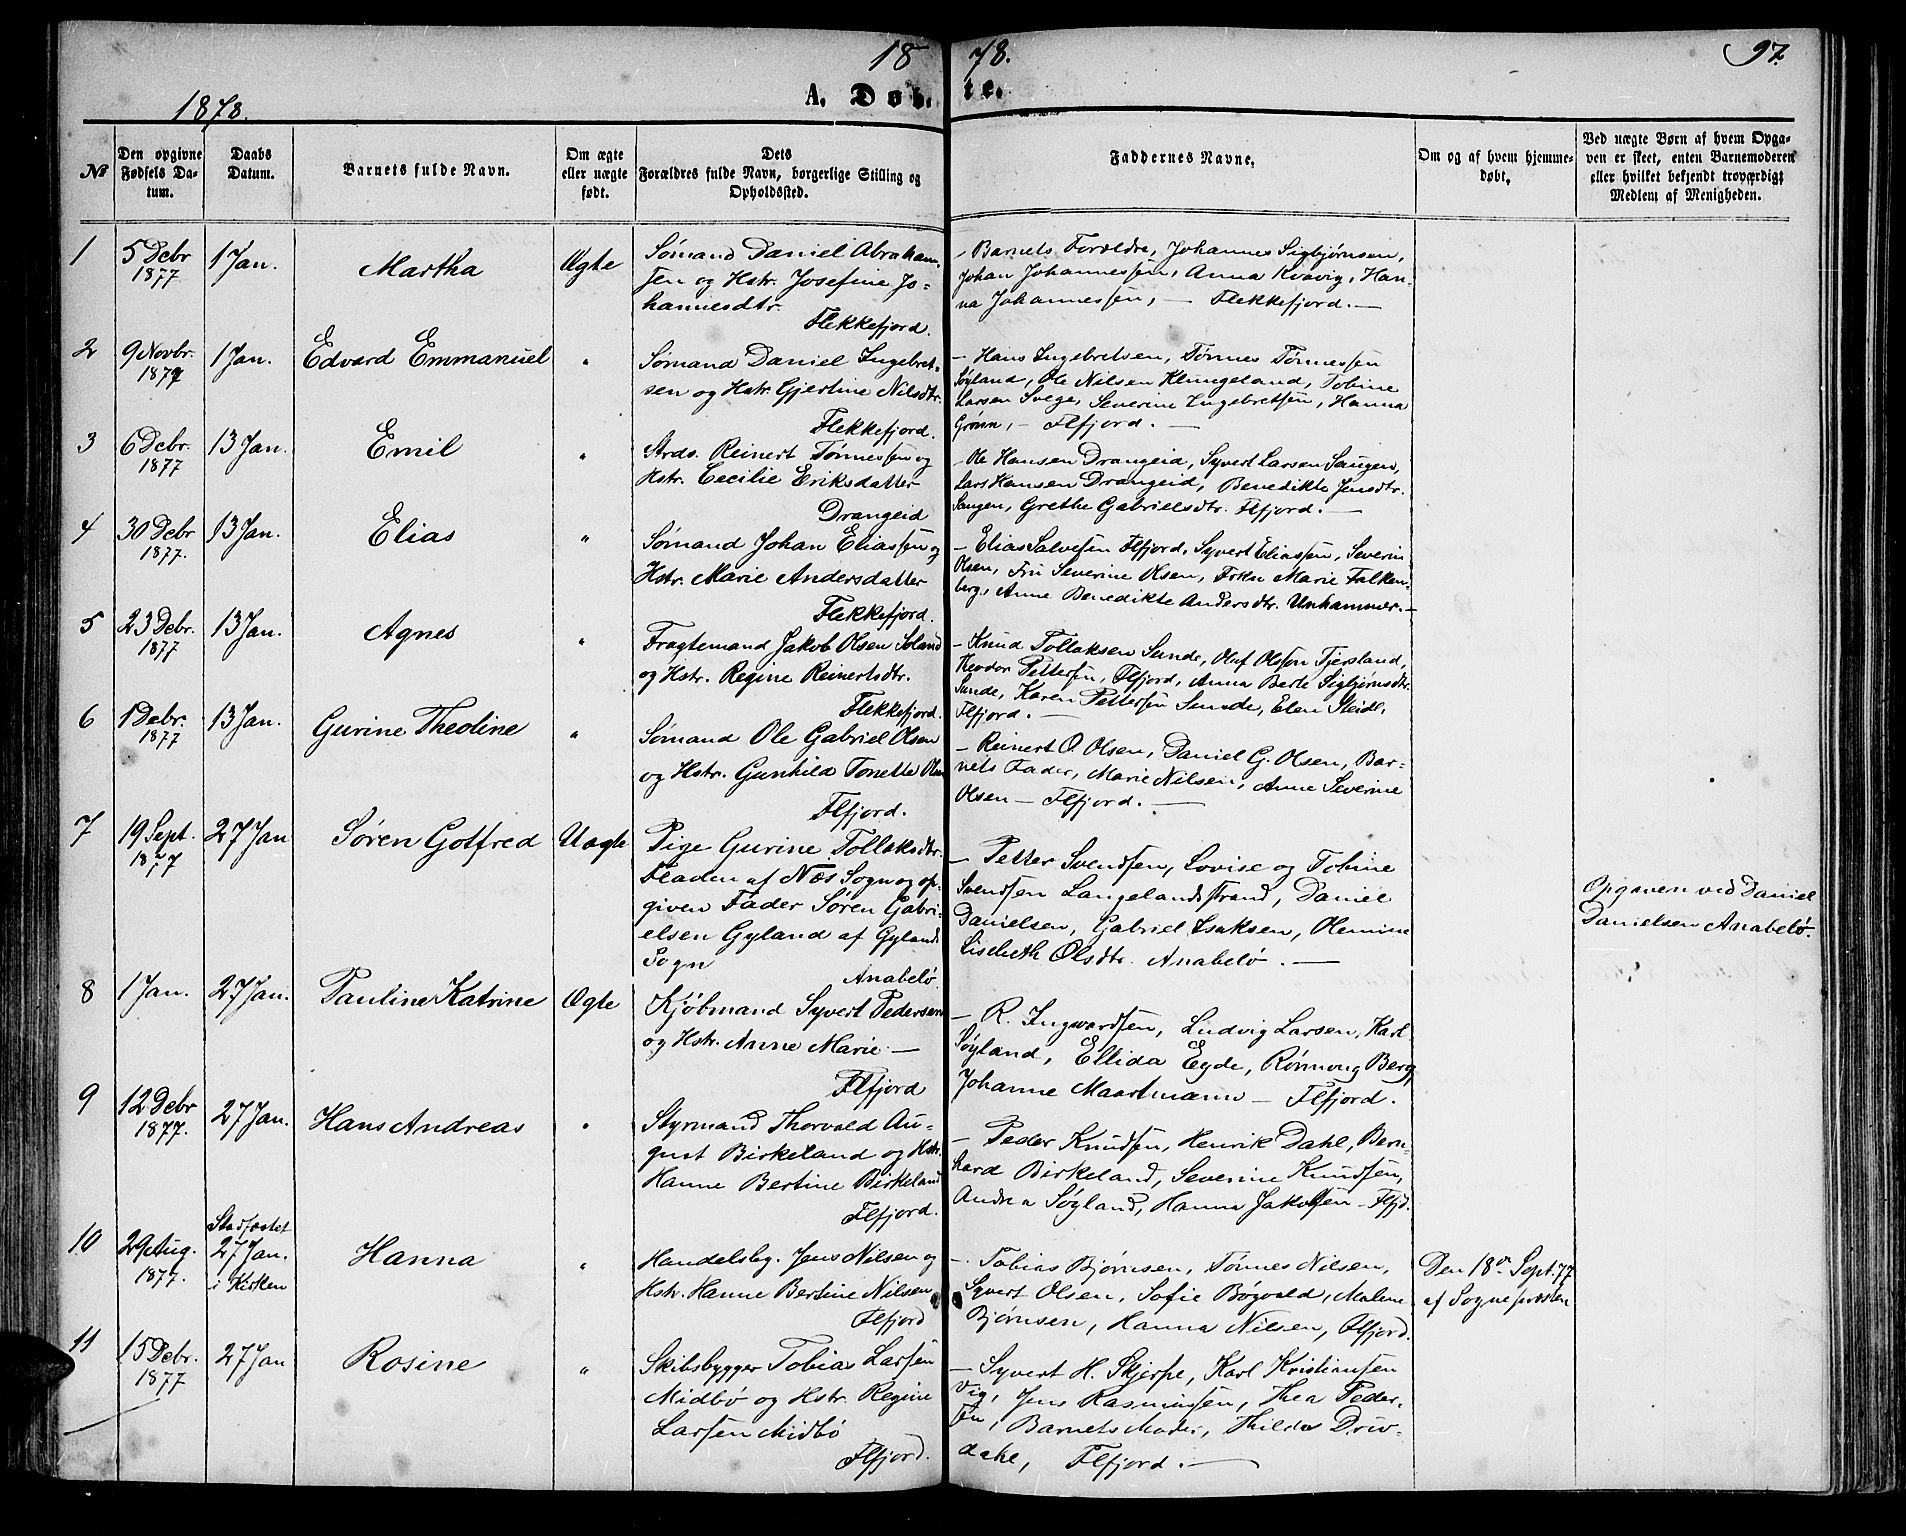 18 78. 97.
A. Døb- te.
1878.
№
Den opgivne Fødsels Datum.
Daabs Datum.
Barnets fulde Navn.
Om ægte eller uægte født.
Dets Forældres fulde Navn, borgerlige Stilling og Opholdssted.
Faddernes Navne.
Om og af hvem hjemmedøbt.
Ved uægte Børn af hvem Opgaven er skeet, enten Barnemoderen eller hvilket bekjendt troværdigt Medlem af Menigheden.
1 5 Debr 1877 1 Jan. Martha Ægte
Sømand Daniel Abraham-
sen og Hstr. Josefine Jo-
hannesdtr.
Flekkefjord.
- Barnets Forældre, Johannes Sigbjørnsen,
Johan Johannessen, Anna Kvavig, Han-
na Johannessen, — Flekkefjord. —
2 9 Novbr. 1877 1 Jan. Edvard Emmanuel "
Sømand Daniel Ingebret-
sen og Hstr. Gjertine Nilsdtr.
Flekkefjord.
- Hans Ingebretsen, Tønnes Tønnessen
Søyland, Ole Nilsen Klungeland, Tobine
Larsen Svege, Severine Ingebretsen, Hanna
Grønn, — Flfjord. —
3 6 Debr. 1877 13 Jan. Emil "
Strds. Reinert Tønnessen og
Hstr. Cecilie Eriksdatter
Drangeid
- Ole Hansen Drangeid, Syvert Larsen Saugen,
Lars Hansen Drangeid, Benedikte Jensdtr.
Saugen, Grethe Gabrielsdtr. Flfjord. —
4 30 Debr 1877. 13 Jan. Elias "
Sømand Johan Eliassen og
Hstr. Marie Andersdatter
Flekkefjord.
- Elias Salvesen Flfjord, Syvert Eliassen, Severin
Olsen, Fru Severine Olsen, Frkn Marie Falken-
berg, Anne Benedikte Andersdtr. Unhammer. -
5 23 Debr. 1877 13 Jan. Agnes "
Fragtemand Jakob Olsen Soland
og Hstr. Regine Reinertsdtr.
Flekkefjord.
- Knud Tollaksen Sunde, Oluf Olsson Fjersland,
Theodor Pettersen, Flfjord, Anna Berte Sigbjørnsdtr.
Sunde, Karen Pettersen Sunde, Elen Steidl,
Flfjord. —
6 1 Debr. 1877 13 Jan. Gurine Theoline "
Sømand Ole Gabriel Olsen
og Hstr. Gunhild Tonette Olsen
Flfjord.
- Reinert O. Olsen, Daniel G. Olsen, Bar-
nets Fader, Marie Nilsen, Anne Severine
Olsen — Flfjord. —
7 19 Sept. 1877 27 Jan Søren Gotfred Uægte
Pige Gurine Tollaksdtr.
Fladen af Næs Sogn og op-
given Fader Søren Gabri-
elsen Gyland af Gylands
Sogn
Anabelø.
- Petter Svendsen, Lovise og Tobine
Svendsen Langelandsstrand, Daniel
Danielsen, Gabriel Isaksen, Olemine
Lisebeth Olsdtr. Anabelø. —
Opgaven ved Daniel
Danielsen Anabelø.
8 1 Jan. 27 Jan. Pauline Katrine Ægte
Kjøbmand Syvert Pedersen
og Hstr. Anne Marie —
Flfjord
- R. Ingwardsen, Ludvig Larsen, Karl
Søyland, Ellida Egde, Berg,
Johanne Maartmann — Flfjord.
9 12 Debr 1877. 27 Jan. Hans Andreas "
Styrmand Thorvald Au-
gust Birkeland og Hstr.
Hanne Bertine Birkeland
Flfjord.
- Peder Knudsen, Henrik Dahl, Bern-
hard Birkeland, Severine Knudsen,
Andrea Søyland, Hanna Jakobsen - Flfjd.
10 29 Aug. 1877. Stadfæstet 27 Jan. i Kirken Hanna "
Handelsbg. Jens Nilsen og
Hstr. Hanne Bertine Nilsen
Flfjord
- Tobias Bjørnsen, Tønnes Nilsen,
Syvert Olsen, Sofie Bøgvald, Malene
Bjørnsen, Hanna Nilsen, Flfjord.
Den 18de Sept. 77
af Sognepræsten
11 15 Debr. 1877 27 Jan Rosine "
Skibsbygger Tobias Larsen
Midbø og Hstr. Regine
Larsen Midbø
Flfjord.
- Syvert H. Skjerpe, Karl Kristiansen
Vig, Jens Rasmussen, Thea Peder-
sen, Barnets Moder, Thilda Driv-
dahl, Flfjord. —